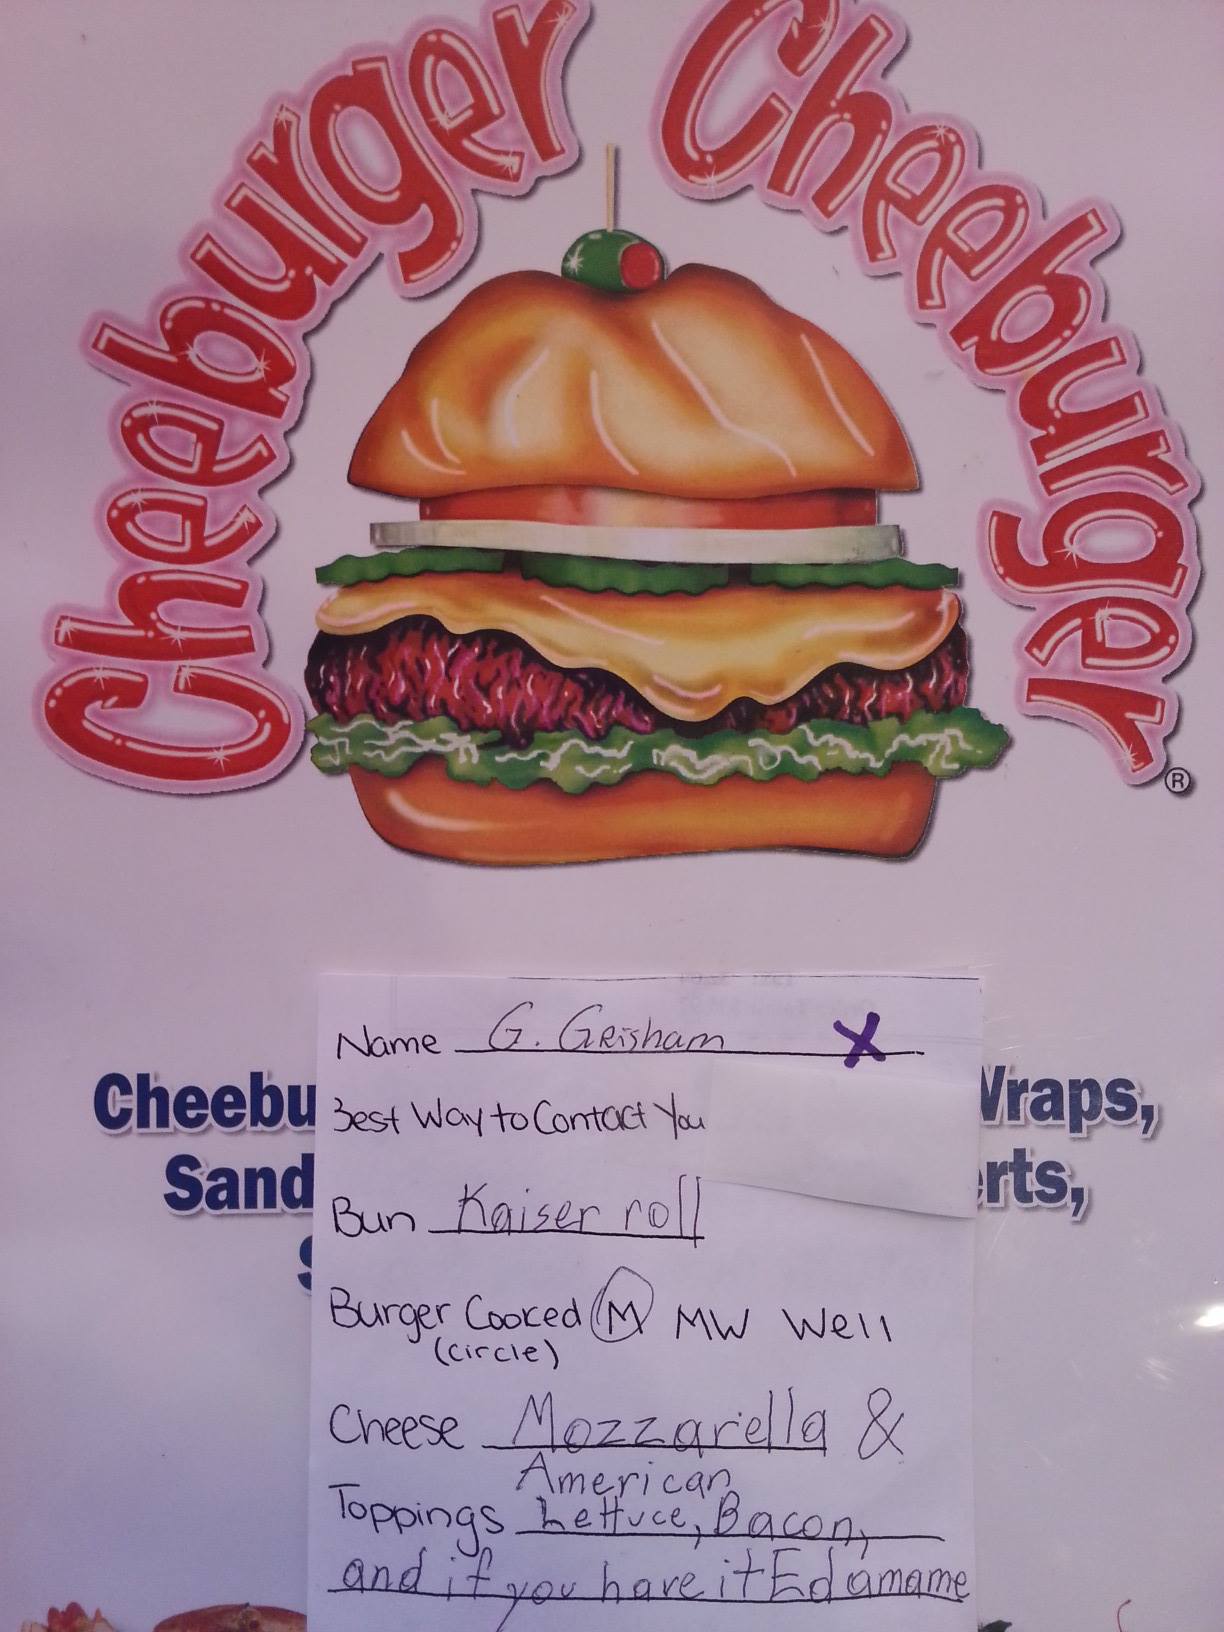 Cheeburger Cheeburger ®
Name G. Grisham X
Best Way to Contact You
Bun Kaiser roll
Burger Cooked M MW Well
(circle)
Cheese Mozzarella &
American
Toppings Lettuce, Bacon,
and if you have it Edamame
Cheebu
Wraps,
Sand
erts,
S